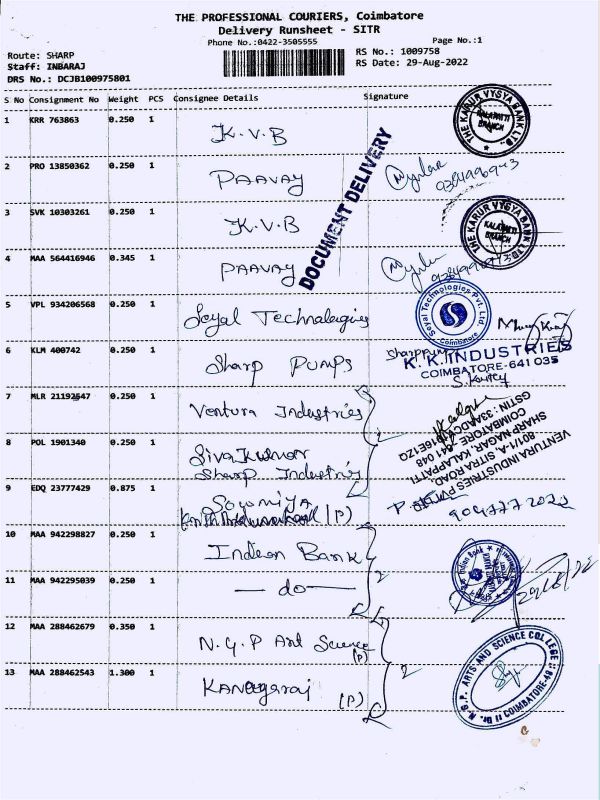 THE PROFESSIONAL COURIERS, Coimbatore
Delivery Runsheet - SITR
Phone No.:0422-3505555
Page No.:1
Route: SHARP
RS No.: 1009758
Staff: INBARAJ
RS Date: 29-Aug-2022
DRS No.: DCJB100975801
S No Consignment No Weight PCS Consignee Details Signature
1 KRR 763863 0.250 1 K.V.B
THE KARUR VYSYA BANK LTD.
KALAPATTI
BRANCH
2 PRO 13850362 0.250 1 PAAVAY
DOCUMENT DELIVERY
3 SVK 10303261 0.250 1 K.V.B
THE KARUR VYSYA BANK LTD.
KALAPATTI
BRANCH
4 MAA 564416946 0.345 1 PAAVAY
5 VPL 934206568 0.250 1 Seyal Technologies
Seyal Technologies Pvt. Ltd.
Coimbatore
6 KLM 400742 0.250 1 Sharp PUMPS
K. K. INDUSTRIES
COIMBATORE-641 035
7 MLR 21192547 0.250 1 Ventura Industries
VENTURA INDUSTRIES PVT LTD
801/1-A, SITRA ROAD,
SHARP NAGAR, KALAPPATTI
COIMBATORE - 641 048
8 POL 1901340 0.250 1 Sivakumar
Sharp Industries
2
9 EDQ 23777429 0.875 1 Sowmiya
(P)
10 MAA 942298827 0.250 1 Indian Bank
11 MAA 942295039 0.250 1 — do —
2
12 MAA 288462679 0.350 1 N.G.P Art Science
(P)
13 MAA 288462543 1.300 1 Kanagaraj (P)
2
N.G.P. ARTS AND SCIENCE COLLEGE
COIMBATORE-48